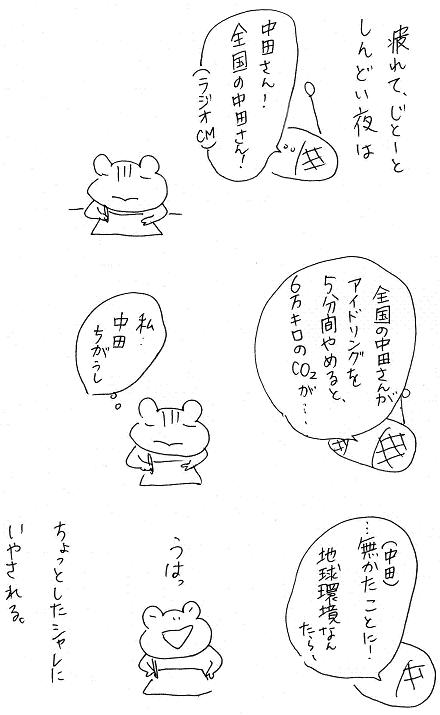 疲れて、じとーと
しんどい夜は
中田さん！
全国の中田さん！
(ラジオCM)
全国の中田さんが
アイドリングを
5分間やめると、
6万キロのCO2が…
私…
中田
ちがうし
(中田)
…無かたことに！
地球環境なん
たら、
うはっ
ちょっとしたシャレに
いやされる。